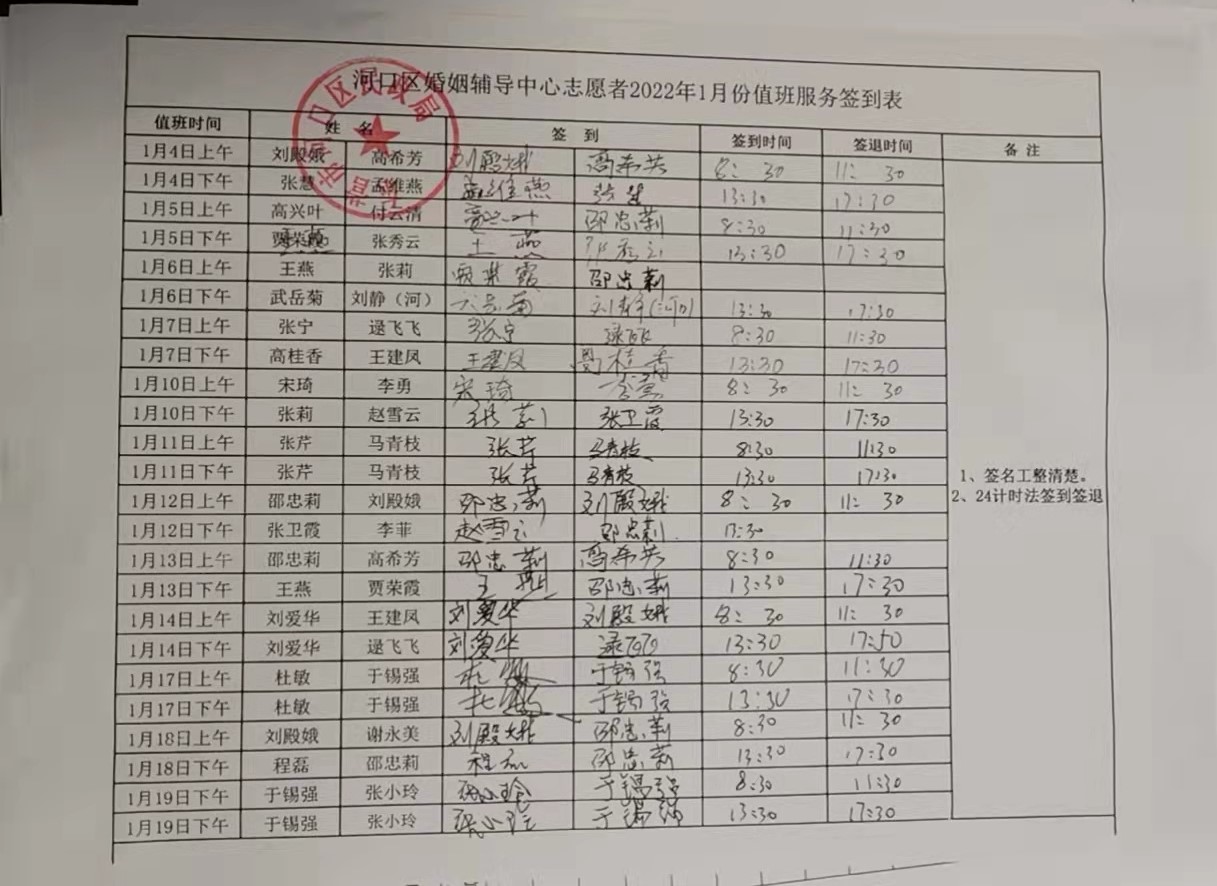 河口区婚姻辅导中心志愿者2022年1月份值班服务签到表
值班时间 姓 名 签 到 签到时间 签退时间 备 注
1月4日上午 刘殿娥 高希芳 刘殿娥 高希芳 8:30 11:30
1月4日下午 张慧 孟维燕 孟维燕 张慧 13:30 17:30
1月5日上午 高兴叶 付云清 高兴叶 邵忠莉 8:30 11:30
1月5日下午 张秀云 王燕 张秀云 13:30 17:30
1月6日上午 王燕 张莉 贾荣霞 邵忠莉
1月6日下午 武岳菊 刘静（河） 武岳菊 刘静(河) 13:30 17:30
1月7日上午 张宁 逯飞飞 张宁 逯飞飞 8:30 11:30
1月7日下午 高桂香 王建凤 王建凤 高桂香 13:30 17:30
1月10日上午 宋琦 李勇 宋琦 8:30 11:30
1月10日下午 张莉 赵雪云 张莉 张卫霞 13:30 17:30
1月11日上午 张芹 马青枝 张芹 马青枝 8:30 11:30
1月11日下午 张芹 马青枝 张芹 马青枝 13:30 17:30
1、签名工整清楚。
2、24计时法签到签退
1月12日上午 邵忠莉 刘殿娥 邵忠莉 刘殿娥 8:30 11:30
1月12日下午 张卫霞 李菲 赵雪云 邵忠莉 13:30
1月13日上午 邵忠莉 高希芳 邵忠莉 高希芳 8:30 11:30
1月13日下午 王燕 贾荣霞 王燕 邵忠莉 13:30 17:30
1月14日上午 刘爱华 王建凤 刘爱华 刘殿娥 8:30 11:30
1月14日下午 刘爱华 逯飞飞 刘爱华 逯飞飞 13:30 17:50
1月17日上午 杜敏 于锡强 杜敏 于锡强 8:30 11:30
1月17日下午 杜敏 于锡强 杜敏 于锡强 13:30 17:30
1月18日上午 刘殿娥 谢永美 刘殿娥 邵忠莉 8:30 11:30
1月18日下午 程磊 邵忠莉 程磊 邵忠莉 13:30 17:30
1月19日下午 于锡强 张小玲 张小玲 于锡强 8:30 11:30
1月19日下午 于锡强 张小玲 张小玲 于锡强 13:30 17:30